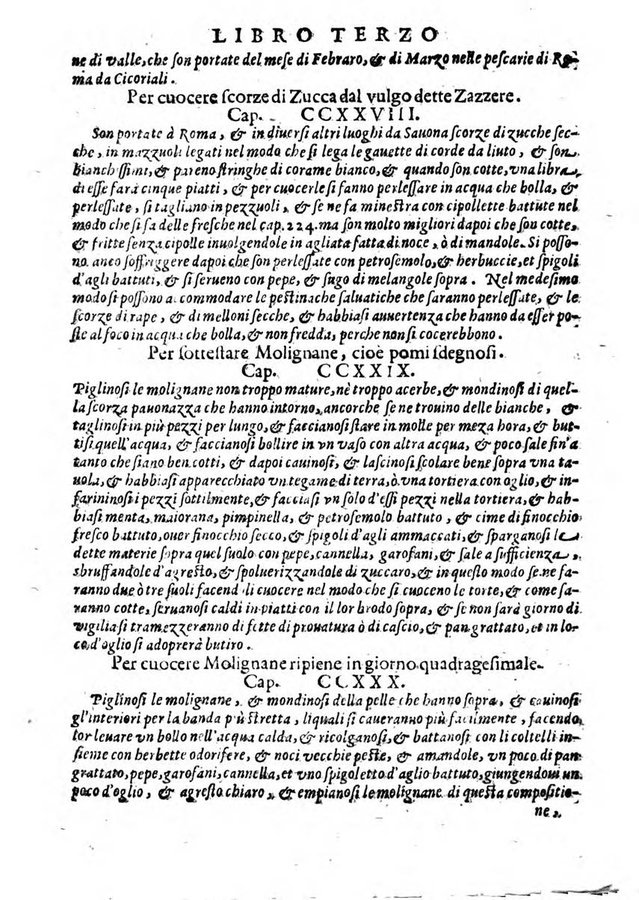 LIBRO TERZO
ne di valle, che son portate del mese di Febraro, & di Marzo nelle pescarie di Ro-
ma da Cicoriali.
Per cuocere scorze di Zucca dal vulgo dette Zazzere.
Cap. CCXXVIII.
Son portate à Roma, & in diuersi altri luoghi da Sauona scorze di zucche sec-
che, in mazzuoli legati nel modo che si lega le gauette di corde da liuto, & son
bianchissimi, & pareno stringhe di corame bianco, & quando son cotte, vna libra
di esse farà cinque piatti, & per cuocerle si fanno perlessare in acqua che bolla, &
perlessate, si tagliano in pezzuoli, & se ne fa minestra con cipollette battute nel
modo che si fa delle fresche nel cap. 224. ma son molto migliori dapoi che son cotte,
& fritte senza cipolle inuolgendole in agliata fatta di noce, ò di mandole. Si posso-
no anco soffriggere dapoi che son perlessate con petrosemolo, & herbuccie, et spigoli
d'agli battuti, & si serueno con pepe, & sugo di melangole sopra. Nel medesimo
modo si possono accommodare le pestinache saluatiche che saranno perlessate, & le
scorze di rape, & di melloni secche, & habbiasi auuertenza che hanno da esser po-
ste al foco in acqua che bolla, & non fredda, perche non si cocerebbono.
Per sottestare Molignane, cioè pomi sdegnosi.
Cap. CCXXIX.
Piglinosi le molignane non troppo mature, nè troppo acerbe, & mondinosi di quel-
la scorza pauonazza che hanno intorno, ancorche se ne trouino delle bianche, &
taglinosi in più pezzi per lungo, & faccianosi stare in molle per meza hora, & but-
tisi quell'acqua, & faccianosi bollire in vn vaso con altra acqua, & poco sale fin'a
tanto che siano ben cotti, & dapoi cauinosi, & lascinosi scolare bene sopra vna ta-
uola, & habbiasi apparecchiato vn tegame di terra, ò vna tortiera con oglio, & in-
farininosi i pezzi sottilmente, & facciasi vn solo d'essi pezzi nella tortiera, & hab-
biasi menta, maiorana, pimpinella, & petrosemolo battuto, & cime di finocchio
fresco battuto, ouer finocchio secco, & spigoli d'agli ammaccati, & sparganosi le
dette materie sopra quel suolo con pepe, cannella, garofani, & sale a sufficienza,
sbruffandole d'agresto, & spoluerizzandole di zuccaro, & in questo modo se ne fa-
ranno due ò tre suoli facendoli cuocere nel modo che si cuoceno le torte, & come sa-
ranno cotte, seruanosi caldi in piatti con il lor brodo sopra, & se non sarà giorno di
vigilia si tramezzeranno di fette di prouatura ò di cascio, & pan grattato, et in lo-
co d'oglio si adoprerà butiro.
Per cuocere Molignane ripiene in giorno quadragesimale.
Cap. CCXXX.
Piglinosi le molignane, & mondinosi della pelle che hanno sopra, & cauinosi
gl'interiori per la banda più stretta, liquali si caueranno più facilmente, facendo
lor leuare vn bollo nell'acqua calda, & ricolganosi, & battanosi con li coltelli in-
sieme con herbette odorifere, & noci vecchie peste, & amandole, vn poco di pan
grattato, pepe, garofani, cannella, et vno spigoletto d'aglio battuto, giungendoui un
poco d'oglio, & agresto chiaro, & empianosi le molignane di questa compositio-
ne,